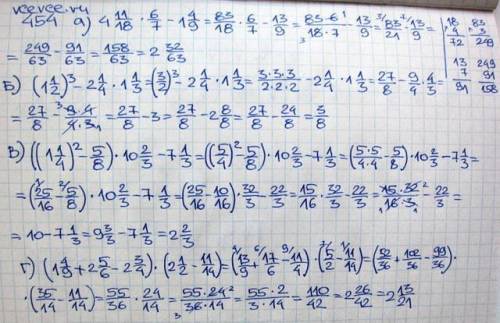 vcevce.ru
454 а) 4 11/18 · 6/7 - 1 4/9 = 83/18 · 6/7 - 13/9 = 83·6¹/₃18·7 - 13/9 = ³/83/21 - ⁷/13/9 =
= 249/63 - 91/63 = 158/63 = 2 32/63
18 4 72
83 3 249
13 7 91
249 91 158
Б) (1 1/2)³ - 2 1/4 · 1 1/3 = (3/2)³ - 2 1/4 · 1 1/3 = 3·3·3/2·2·2 - 2 1/4 · 1 1/3 = 27/8 - 9/4 · 4/3 =
= 27/8 - ³9·4/4·3₁ = 27/8 - 3 = 27/8 - 2 8/8 = 27/8 - 24/8 = 3/8
В) ((1 1/4)² - 5/8) · 10 2/3 - 7 1/3 = ((5/4)² - 5/8) · 10 2/3 - 7 1/3 = (5·5/4·4 - 5/8) · 10 2/3 - 7 1/3 =
= (¹/25/16 - ²/5/8) · 10 2/3 - 7 1/3 = (25/16 - 10/16) · 32/3 - 22/3 = 15/16 · 32/3 - 22/3 = 15·32²/₁16·3₁ - 22/3 =
= 10 - 7 1/3 = 9 3/3 - 7 1/3 = 2 2/3
Г) (1 4/9 + 2 5/6 - 2 3/4) · (2 1/2 - 11/14) = (⁴/13/9 + ⁶/17/6 - ⁹/11/4) · (⁷/5/2 - ¹/11/14) = (52/36 + 102/36 - 99/36) ·
· (35/14 - 11/14) = 55/36 · 24/14 = 55·24²/₃36·14 = 55·2/3·14 = 110/42 = 2 26/42 = 2 13/21